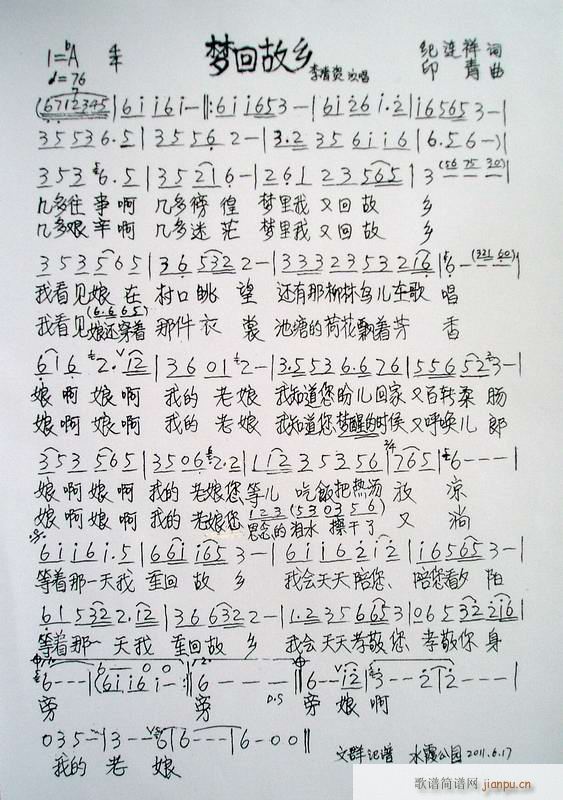 梦回故乡
1=bA 4/4
♩=76
李胥奕 演唱
纪连祥 词
印青 曲
(6712345)|6 i i 6 i -|:6 i i 6 5 3 -|6 i 2 6 i . 2|i 6 5 6 5 3 -|
3 5 5 3 6 . 5|3 5 5 6 2 -|3 . 2 3 5 6 i i 6|6 . 5 6 -)|
3 5 3 6 . 5|3 5 2 1 6 -|2 6 1 2 3 5 6 5|3 (56 75 30)|
几多往事啊 几多徬徨 梦里我又回故 乡
几多艰辛啊 几多迷茫 梦里我又回故 乡
3 5 3 5 6 5|3 6 5 3 2 2 -|3 3 3 2 3 5 3 2 1 6|6 - (321 60)|
我看见娘在 村口眺望 还有那柳林鸟儿在歌 唱
(6. 6 6 5)
我看见娘还穿着 那件衣裳 池塘的荷花飘着芳 香
6 1 6 2 . 1 2|3 6 0 1 2 -|3 . 5 5 3 6 . 6 7 6|5 5 6 5 2 3 -|
娘啊娘啊 我的老娘 我知道您盼儿回家又百转柔肠
娘啊娘啊 我的老娘 我知道您梦醒的时候又呼唤儿郎
3 5 3 5 6 5|3 5 0 6 2 . 2|1 1 2 3 5 3 5 6|7 6 5|6 - - -|
娘啊娘啊 我的老娘您等儿 吃飯把热汤 放 凉
1 2 3 (5 3 0 3 5 6)
娘啊娘啊 我的老娘您思念的泪水 擦干了 又 淌
6 i i i 6 i . 5|6 6 i i 6 5 3 -|6 i i 6 2 i 2|i 6 5 6 5 3 -|
等着那一天我 重回故乡 我会天天陪您、陪您看夕阳
6 1 5 3 2 2 . 1 2|3 6 6 3 2 2 -|1 . 2 3 5 6 6 5 3|0 6 5 3 2 2 1 6|
等着那一天我 重回故乡 我会天天孝敬您 孝敬你身
6 - - -|(6 i i 6 i - :|6 - - -‖6 - - i 2|3 - - 2|2 - - -|
旁 旁 D.S 旁 娘啊
0 3 5 -|3 - - 6|6 - - -|6 - 0 0‖
我的老娘
文群记谱 水霞公园 2011.6.17
歌谱简谱网
jianpu.cn